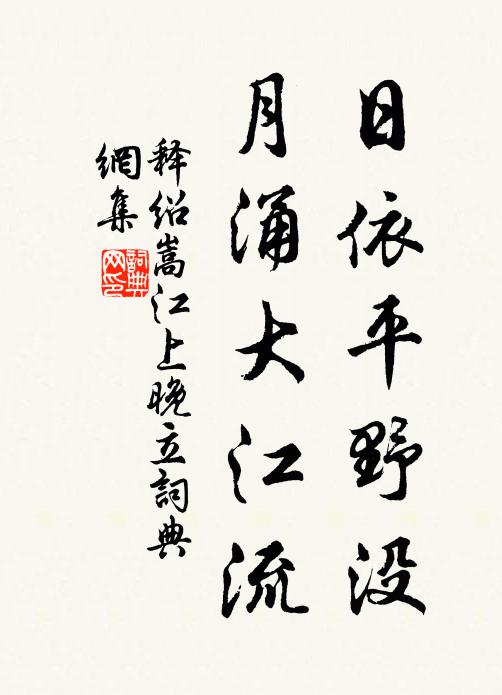 日依平野没
月涌大江流
释绍嵩江上晚立詞典
網集
詞典
网印